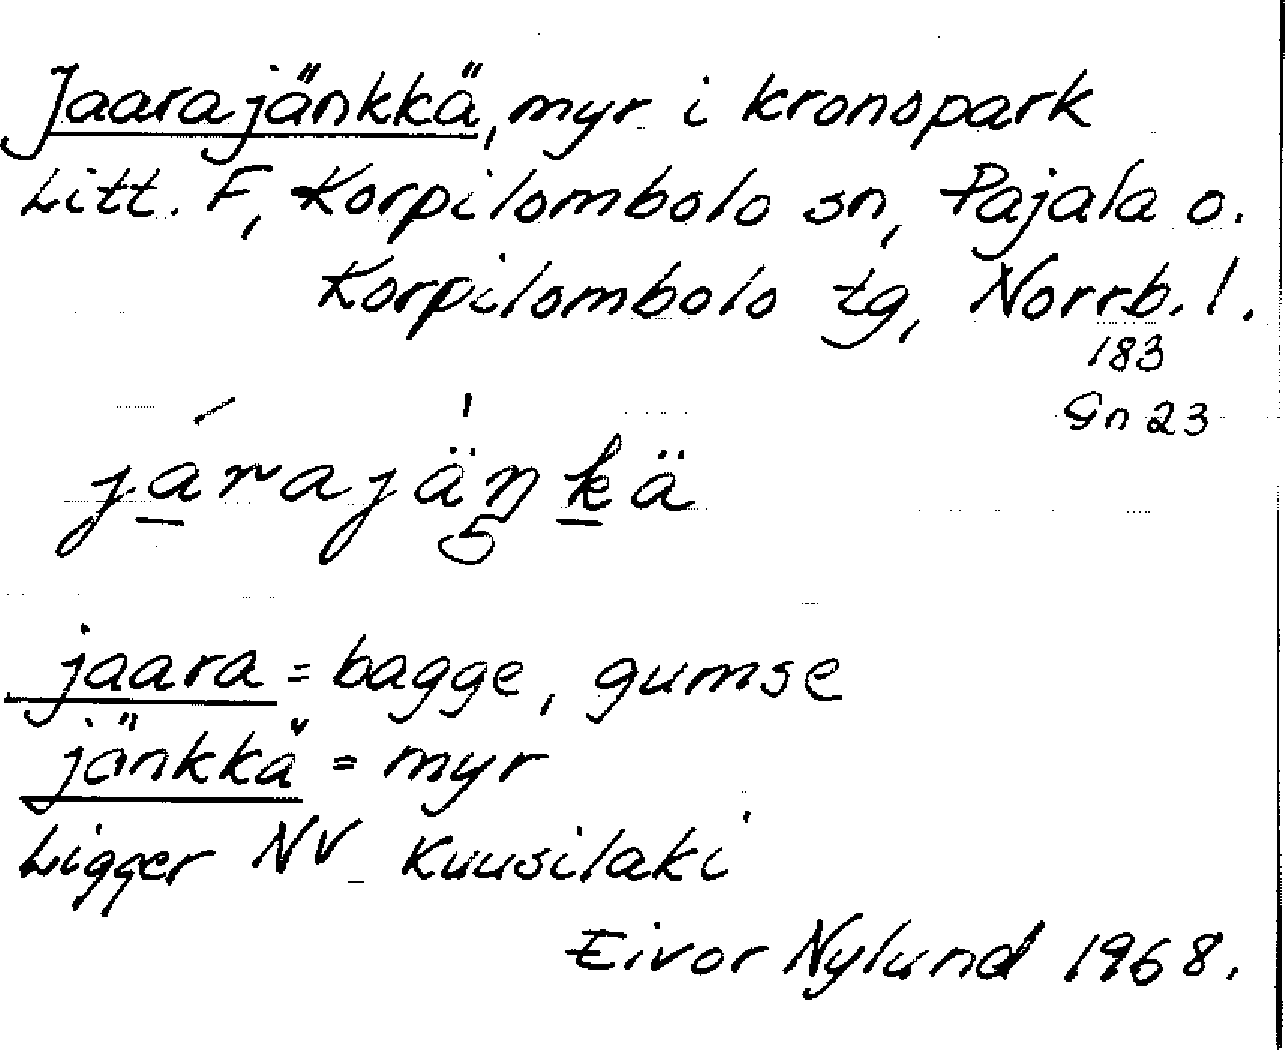 Jaarajänkkä, myr i kronopark
Litt. F, Korpilombolo sn, Pajala o.
Korpilombolo tg, Norrb. l.
183
Gn 23
járajäŋkä
jaara = bagge, gumse
jänkkä = myr
Ligger NV Kuusilaki
Eivor Nylund 1968.